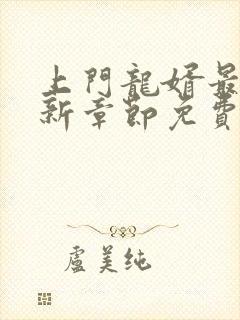 上門龍婿最
新章節免費
盧美純